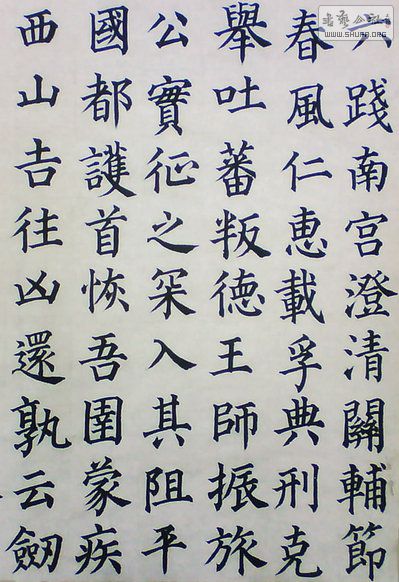 六踐南宮澄清關輔節
春風仁恵載孚典刑克
舉吐蕃叛德王師振旅
公實征之罙入其阻平
國都護首恢吾圉蒙疾
西山吉往凶還孰云劒
WWW.SHUFA.ORG